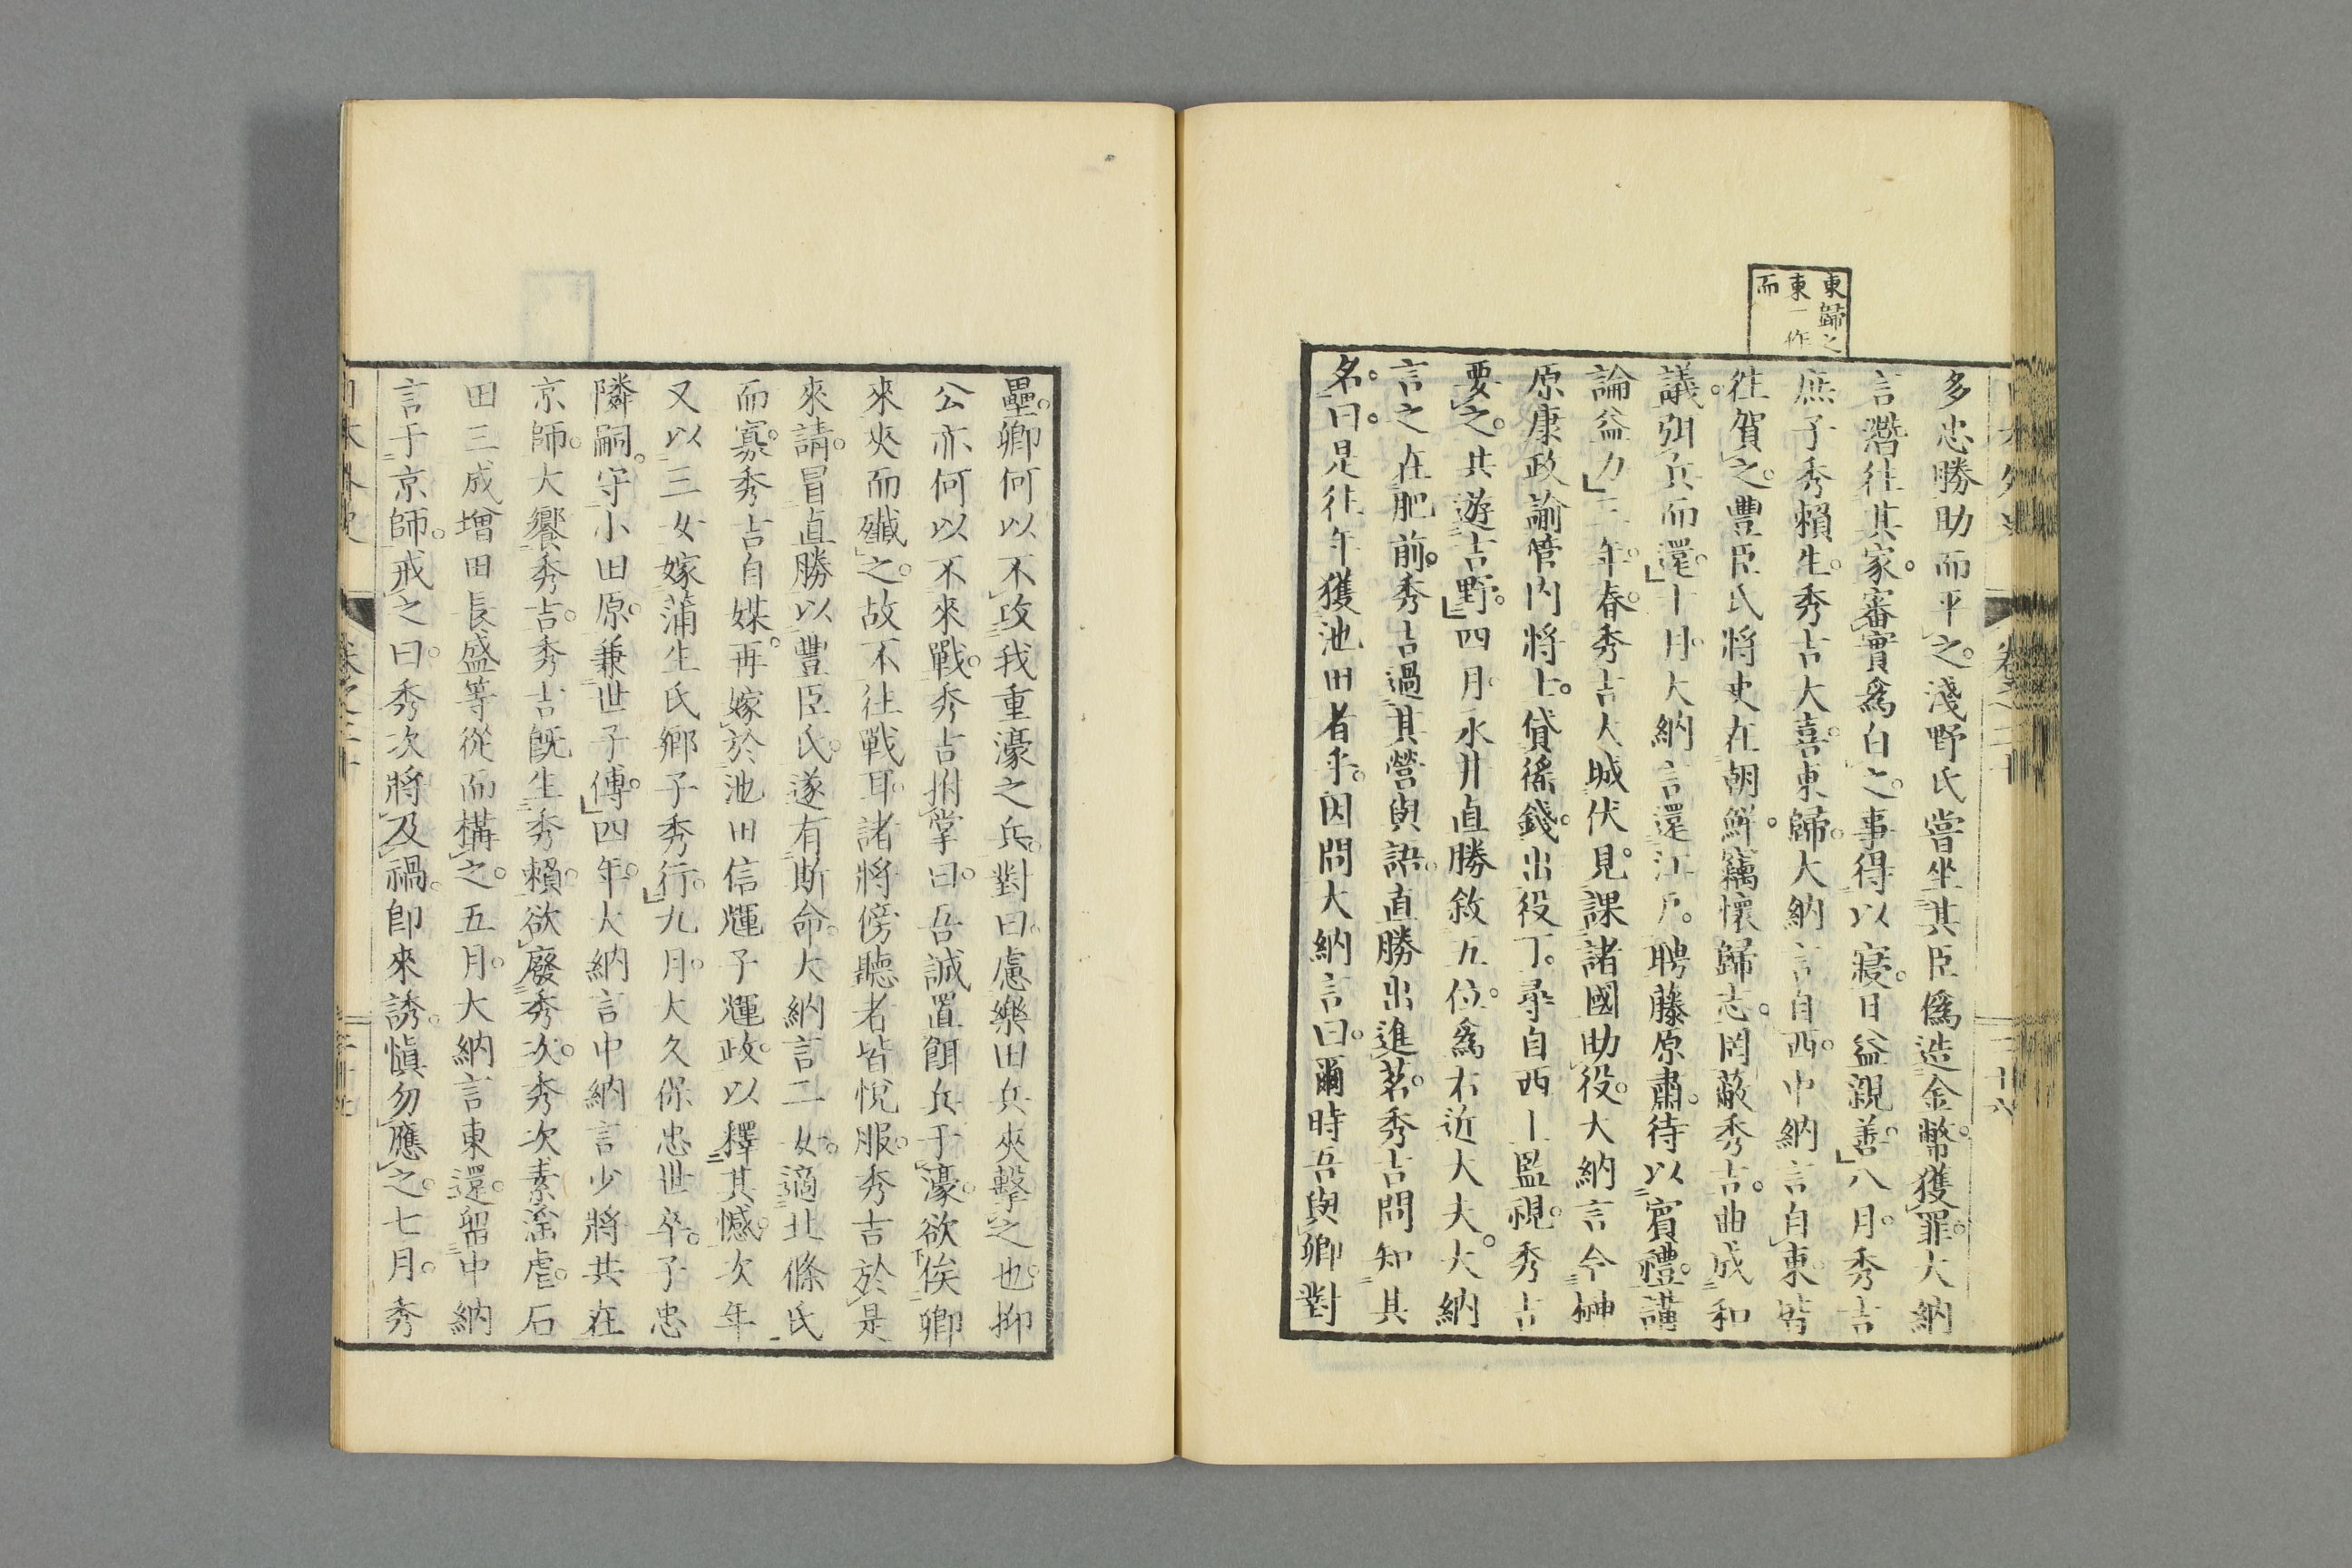 東歸之
東一作
而
多忠勝助而平之。淺野氏嘗坐其臣僞造金幣。獲罪。大納
言潛往其家。審實爲白之。事得以寢。日益親善。」八月。秀吉
庶子秀賴生。秀吉大喜。東歸。大納言自西。中納言自東。皆
往賀之。豐臣氏將吏在朝鮮。竊懷歸志。罔蔽秀吉。曲成和
議。弭兵而還。」十月。大納言還江戶。聘藤原肅。待以賓禮。講
論益力。」三年。春。秀吉大城伏見。課諸國助役。大納言令榊
原康政諭管内將士。貸徭錢。出役丁。尋自西上監視。秀吉
要之。共遊吉野。」四月。永井直勝敘五位。爲右近大夫。大納
言之在肥前。秀吉過其營與語。直勝出進茗。秀吉問知其
名。曰。是往年獲池田者乎。因問大納言曰。爾時吾與卿對
壘。卿何以不攻我重濠之兵。對曰。慮樂田兵夾擊之也。抑
公亦何以不來戰。秀吉拊掌曰。吾誠置餌兵于濠。欲俟卿
來夾而殲之。故不往戰耳。諸將傍聽者皆悅服。秀吉於是
來請。冒直勝以豐臣氏。遂有斯命。大納言二女。適北條氏
而寡。秀吉自媒。再嫁於池田信輝子輝政。以釋其憾。次年
又以三女嫁蒲生氏鄕子秀行。」九月。大久保忠世卒。子忠
隣嗣。守小田原。兼世子傅。」四年。大納言中納言少將共在
京師。大饗秀吉。秀吉既生秀賴。欲廢秀次。秀次素淫虐。石
田三成增田長盛等從而構之。五月。大納言東還。留中納
言于京師。戒之曰。秀次將及禍。卽來誘。愼勿應之。七月。秀